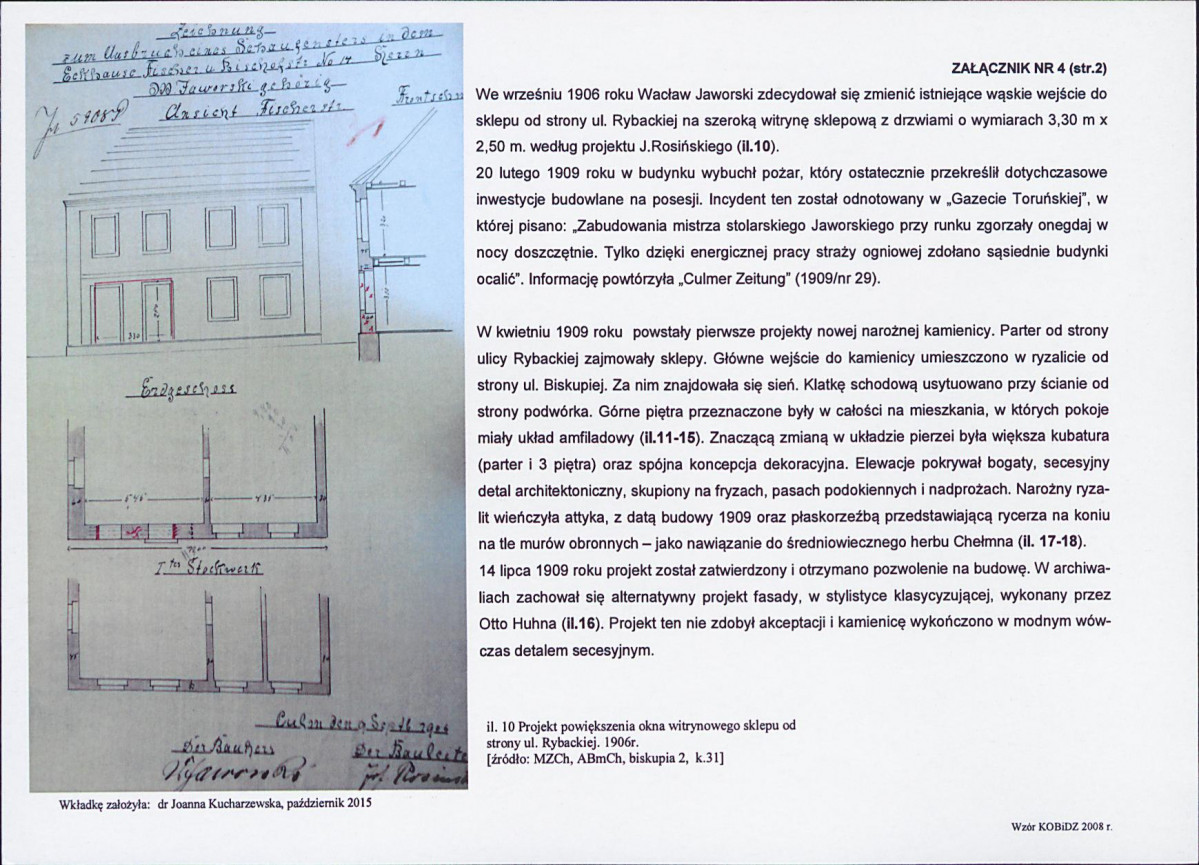 Zeichnung
zum Ausbruch eines Schaufensters in dem
Eckhause Fischer u Bischofstr No 17
W Jaworski gehörig
Ansicht Fischerstr
Frontschn
J 5908
330
Erdgeschoss
Iter Stockwerk
Culm den 9 Septb 1906
Der Bauherr
Der Bauleite
WJaworski
Wkładkę założyła: dr Joanna Kucharzewska, październik 2015
ZAŁĄCZNIK NR 4 (str.2)
We wrześniu 1906 roku Wacław Jaworski zdecydował się zmienić istniejące wąskie wejście do
sklepu od strony ul. Rybackiej na szeroką witrynę sklepową z drzwiami o wymiarach 3,30 m x
2,50 m. według projektu J.Rosińskiego (il.10).
20 lutego 1909 roku w budynku wybuchł pożar, który ostatecznie przekreślił dotychczasowe
inwestycje budowlane na posesji. Incydent ten został odnotowany w „Gazecie Toruńskiej", w
której pisano: „Zabudowania mistrza stolarskiego Jaworskiego przy runku zgorzały onegdaj w
nocy doszczętnie. Tylko dzięki energicznej pracy straży ogniowej zdołano sąsiednie budynki
ocalić". Informację powtórzyła „Culmer Zeitung" (1909/nr 29).
W kwietniu 1909 roku powstały pierwsze projekty nowej narożnej kamienicy. Parter od strony
ulicy Rybackiej zajmowały sklepy. Główne wejście do kamienicy umieszczono w ryzalicie od
strony ul. Biskupiej. Za nim znajdowała się sień. Klatkę schodową usytuowano przy ścianie od
strony podwórka. Górne piętra przeznaczone były w całości na mieszkania, w których pokoje
miały układ amfiladowy (il.11-15). Znaczącą zmianą w układzie pierzei była większa kubatura
(parter i 3 piętra) oraz spójna koncepcja dekoracyjna. Elewacje pokrywał bogaty, secesyjny
detal architektoniczny, skupiony na fryzach, pasach podokiennych i nadprożach. Narożny ryza-
lit wieńczyła attyka, z datą budowy 1909 oraz płaskorzeźbą przedstawiającą rycerza na koniu
na tle murów obronnych – jako nawiązanie do średniowiecznego herbu Chełmna (il. 17-18).
14 lipca 1909 roku projekt został zatwierdzony i otrzymano pozwolenie na budowę. W archiwa-
liach zachował się alternatywny projekt fasady, w stylistyce klasycyzującej, wykonany przez
Otto Huhna (il.16). Projekt ten nie zdobył akceptacji i kamienicę wykończono w modnym wów-
czas detalem secesyjnym.
il. 10 Projekt powiększenia okna witrynowego sklepu od
strony ul. Rybackiej. 1906r.
[źródło: MZCh, ABmCh, biskupia 2, k.31]
Wzór KOBiDZ 2008 r.